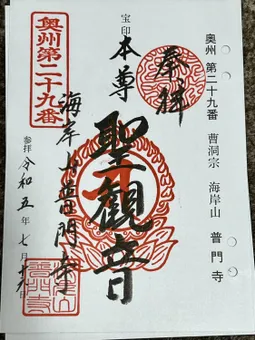 奥州 第二十九番 曹洞宗 海岸山 普門寺
奉拝
宝印
本尊
聖観音
海岸山普門寺
奥州第二十九番
参拝 令和五年七月十六日
普門寺